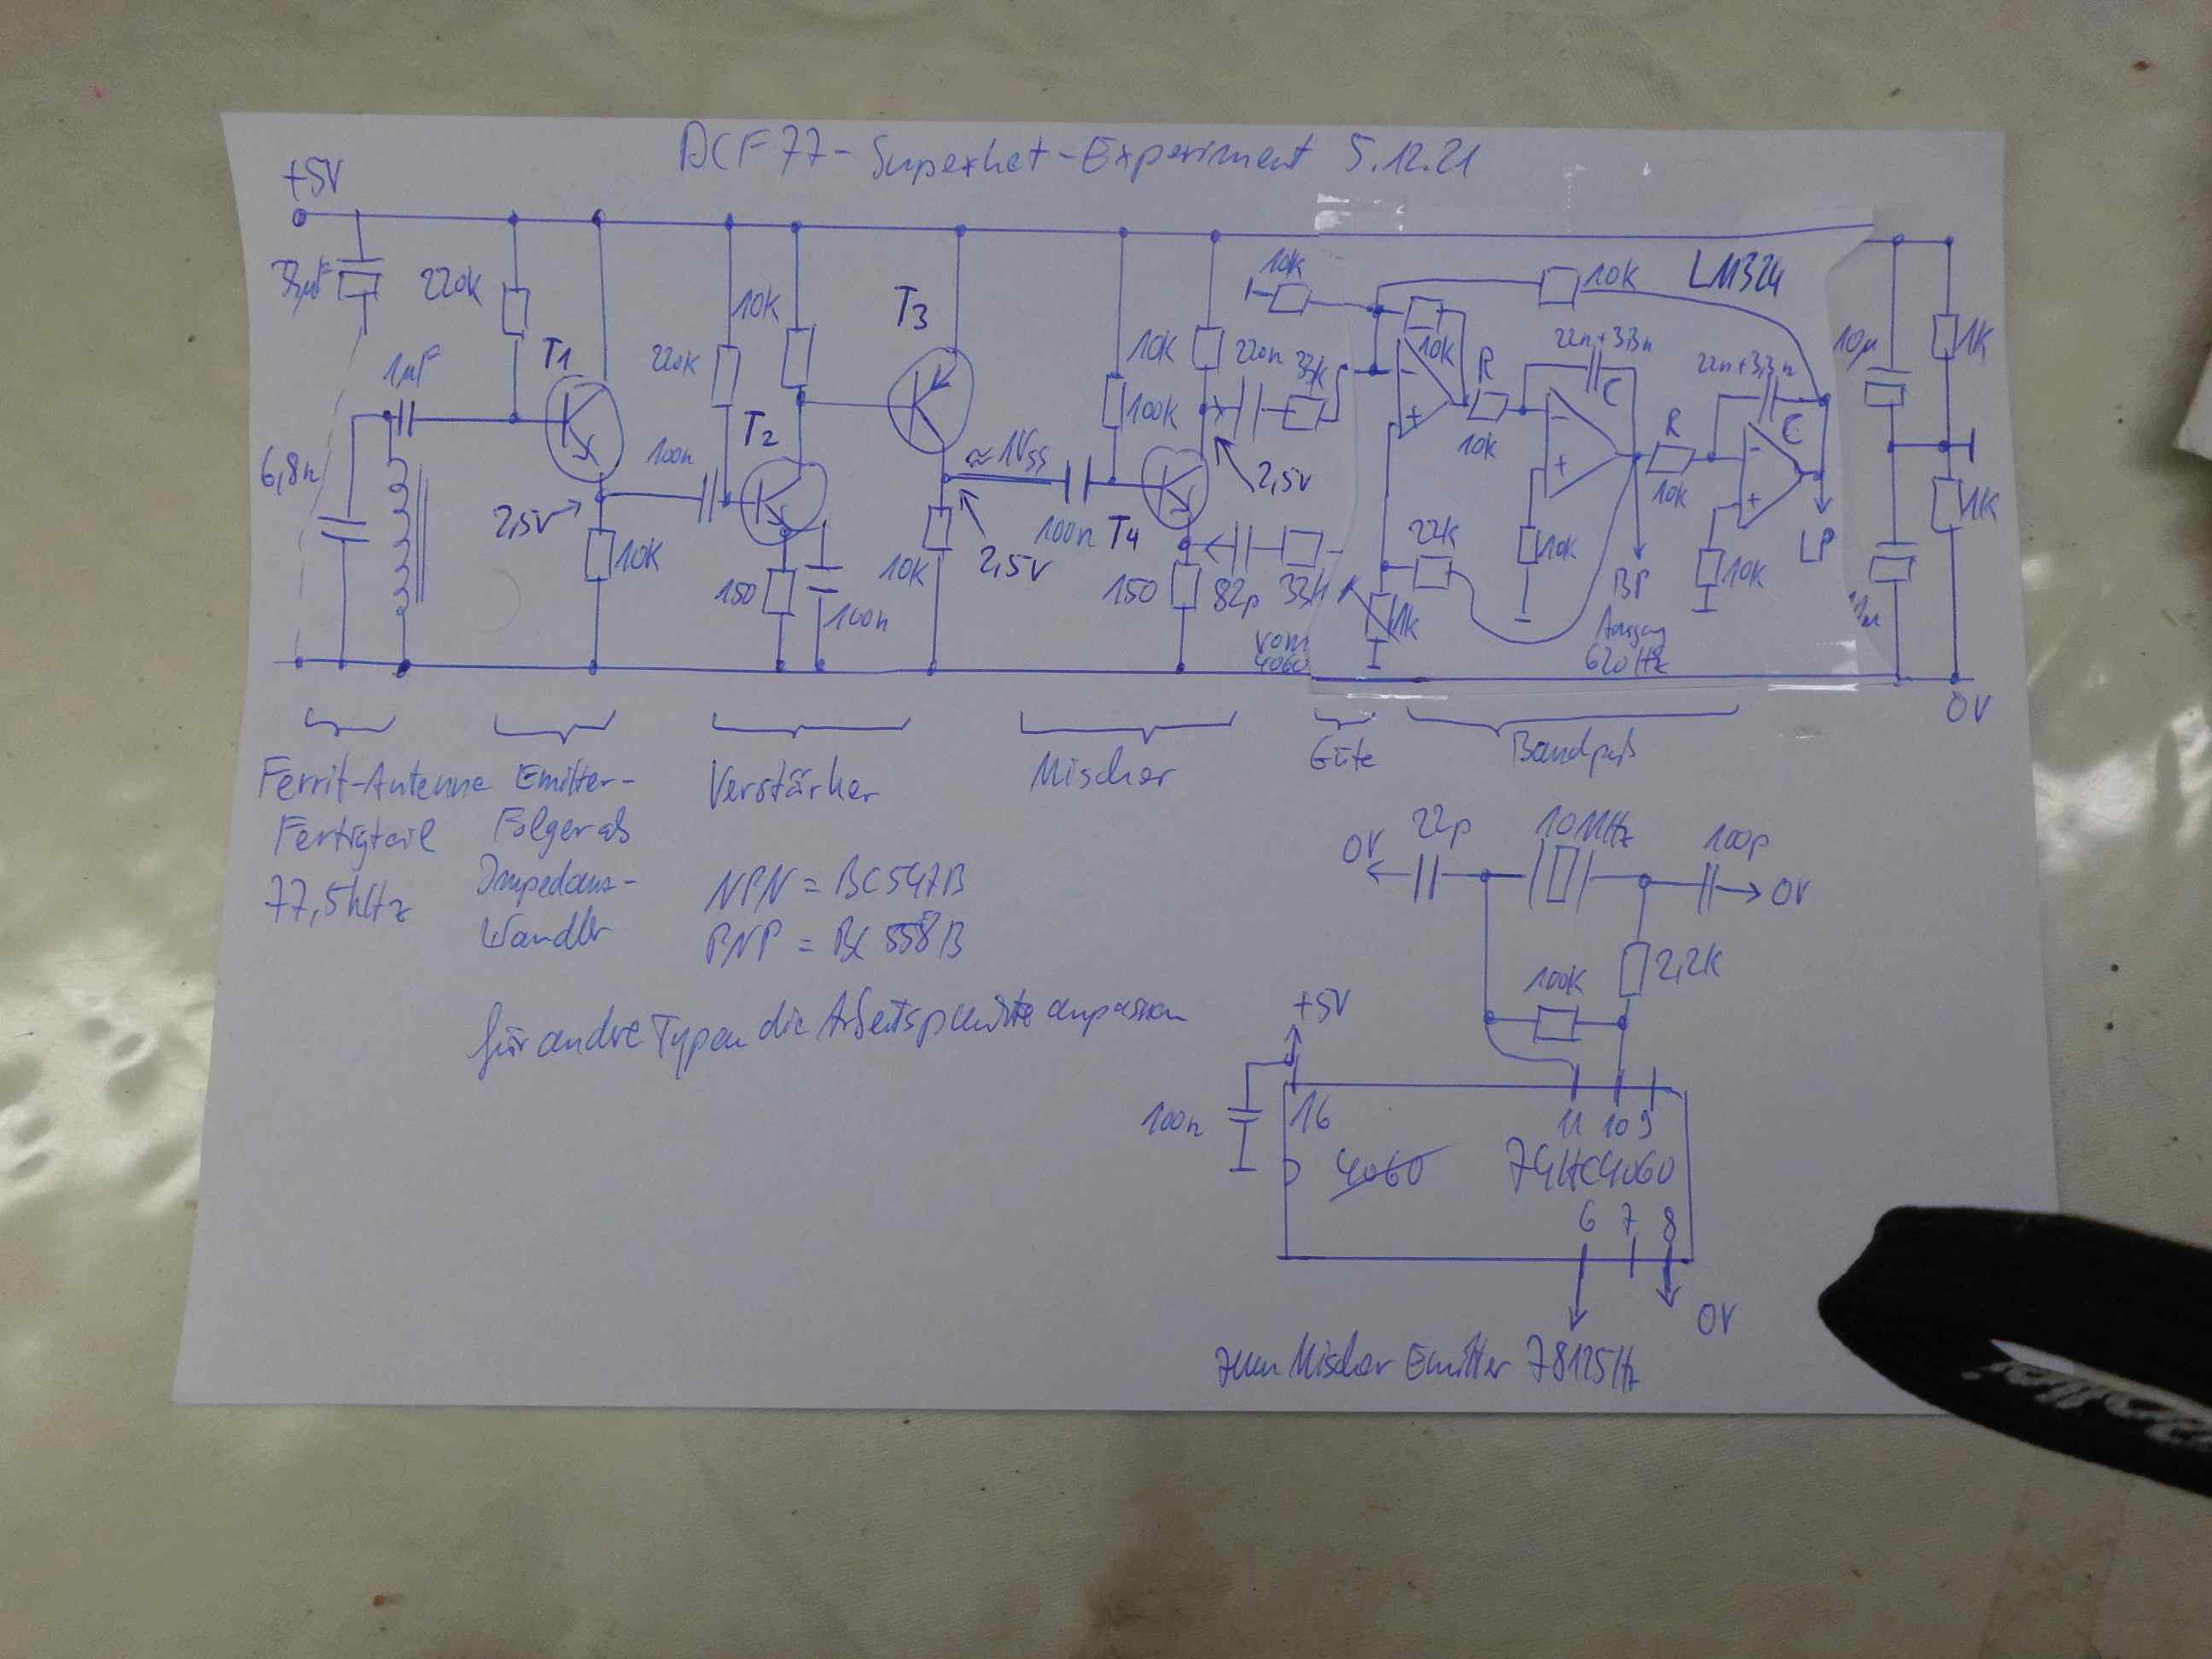 DCF77-Superhet-Experiment 5.12.21
+5V
220k
T1
1µF
6,8n
2,5V
10k
220k
10k
T2
100n
150
100n
T3
≈1Vss
10k
2,5V
100n
T4
100k
10k
2,5V
150
220n
33k
82p
33k
vom
4060
10k
10k
10k
LM324
R
10k
22n+3,3n
C
R
10k
22n+3,3n
C
22k
1k
10k
10k
BP
Ausgang
620Hz
LP
10µ
1k
1k
0V
Ferrit-Antenne
Fertigteil
77,5kHz
Emitter-
Folger als
Impedanz-
Wandler
Verstärker
Mischer
Güte
Bandpaß
NPN = BC547B
PNP = BC558B
für andre Typen die Arbeitspunkte anpassen
0V
22p
10MHz
100p
0V
100k
2,2k
+5V
100n
16
11 10 9
4060
74HC4060
6 7 8
0V
zum Mischer Emitter 78125Hz